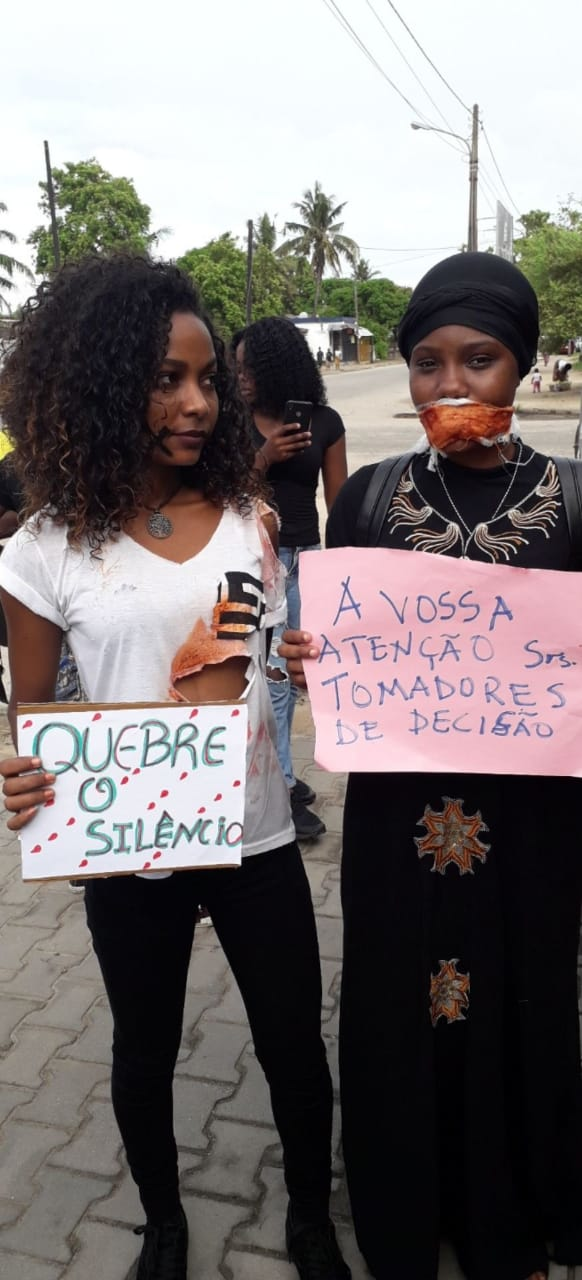 QUEBRE
O
SILÊNCIO
A VOSSA
ATENÇÃO Srs.
TOMADORES
DE DECISÃO